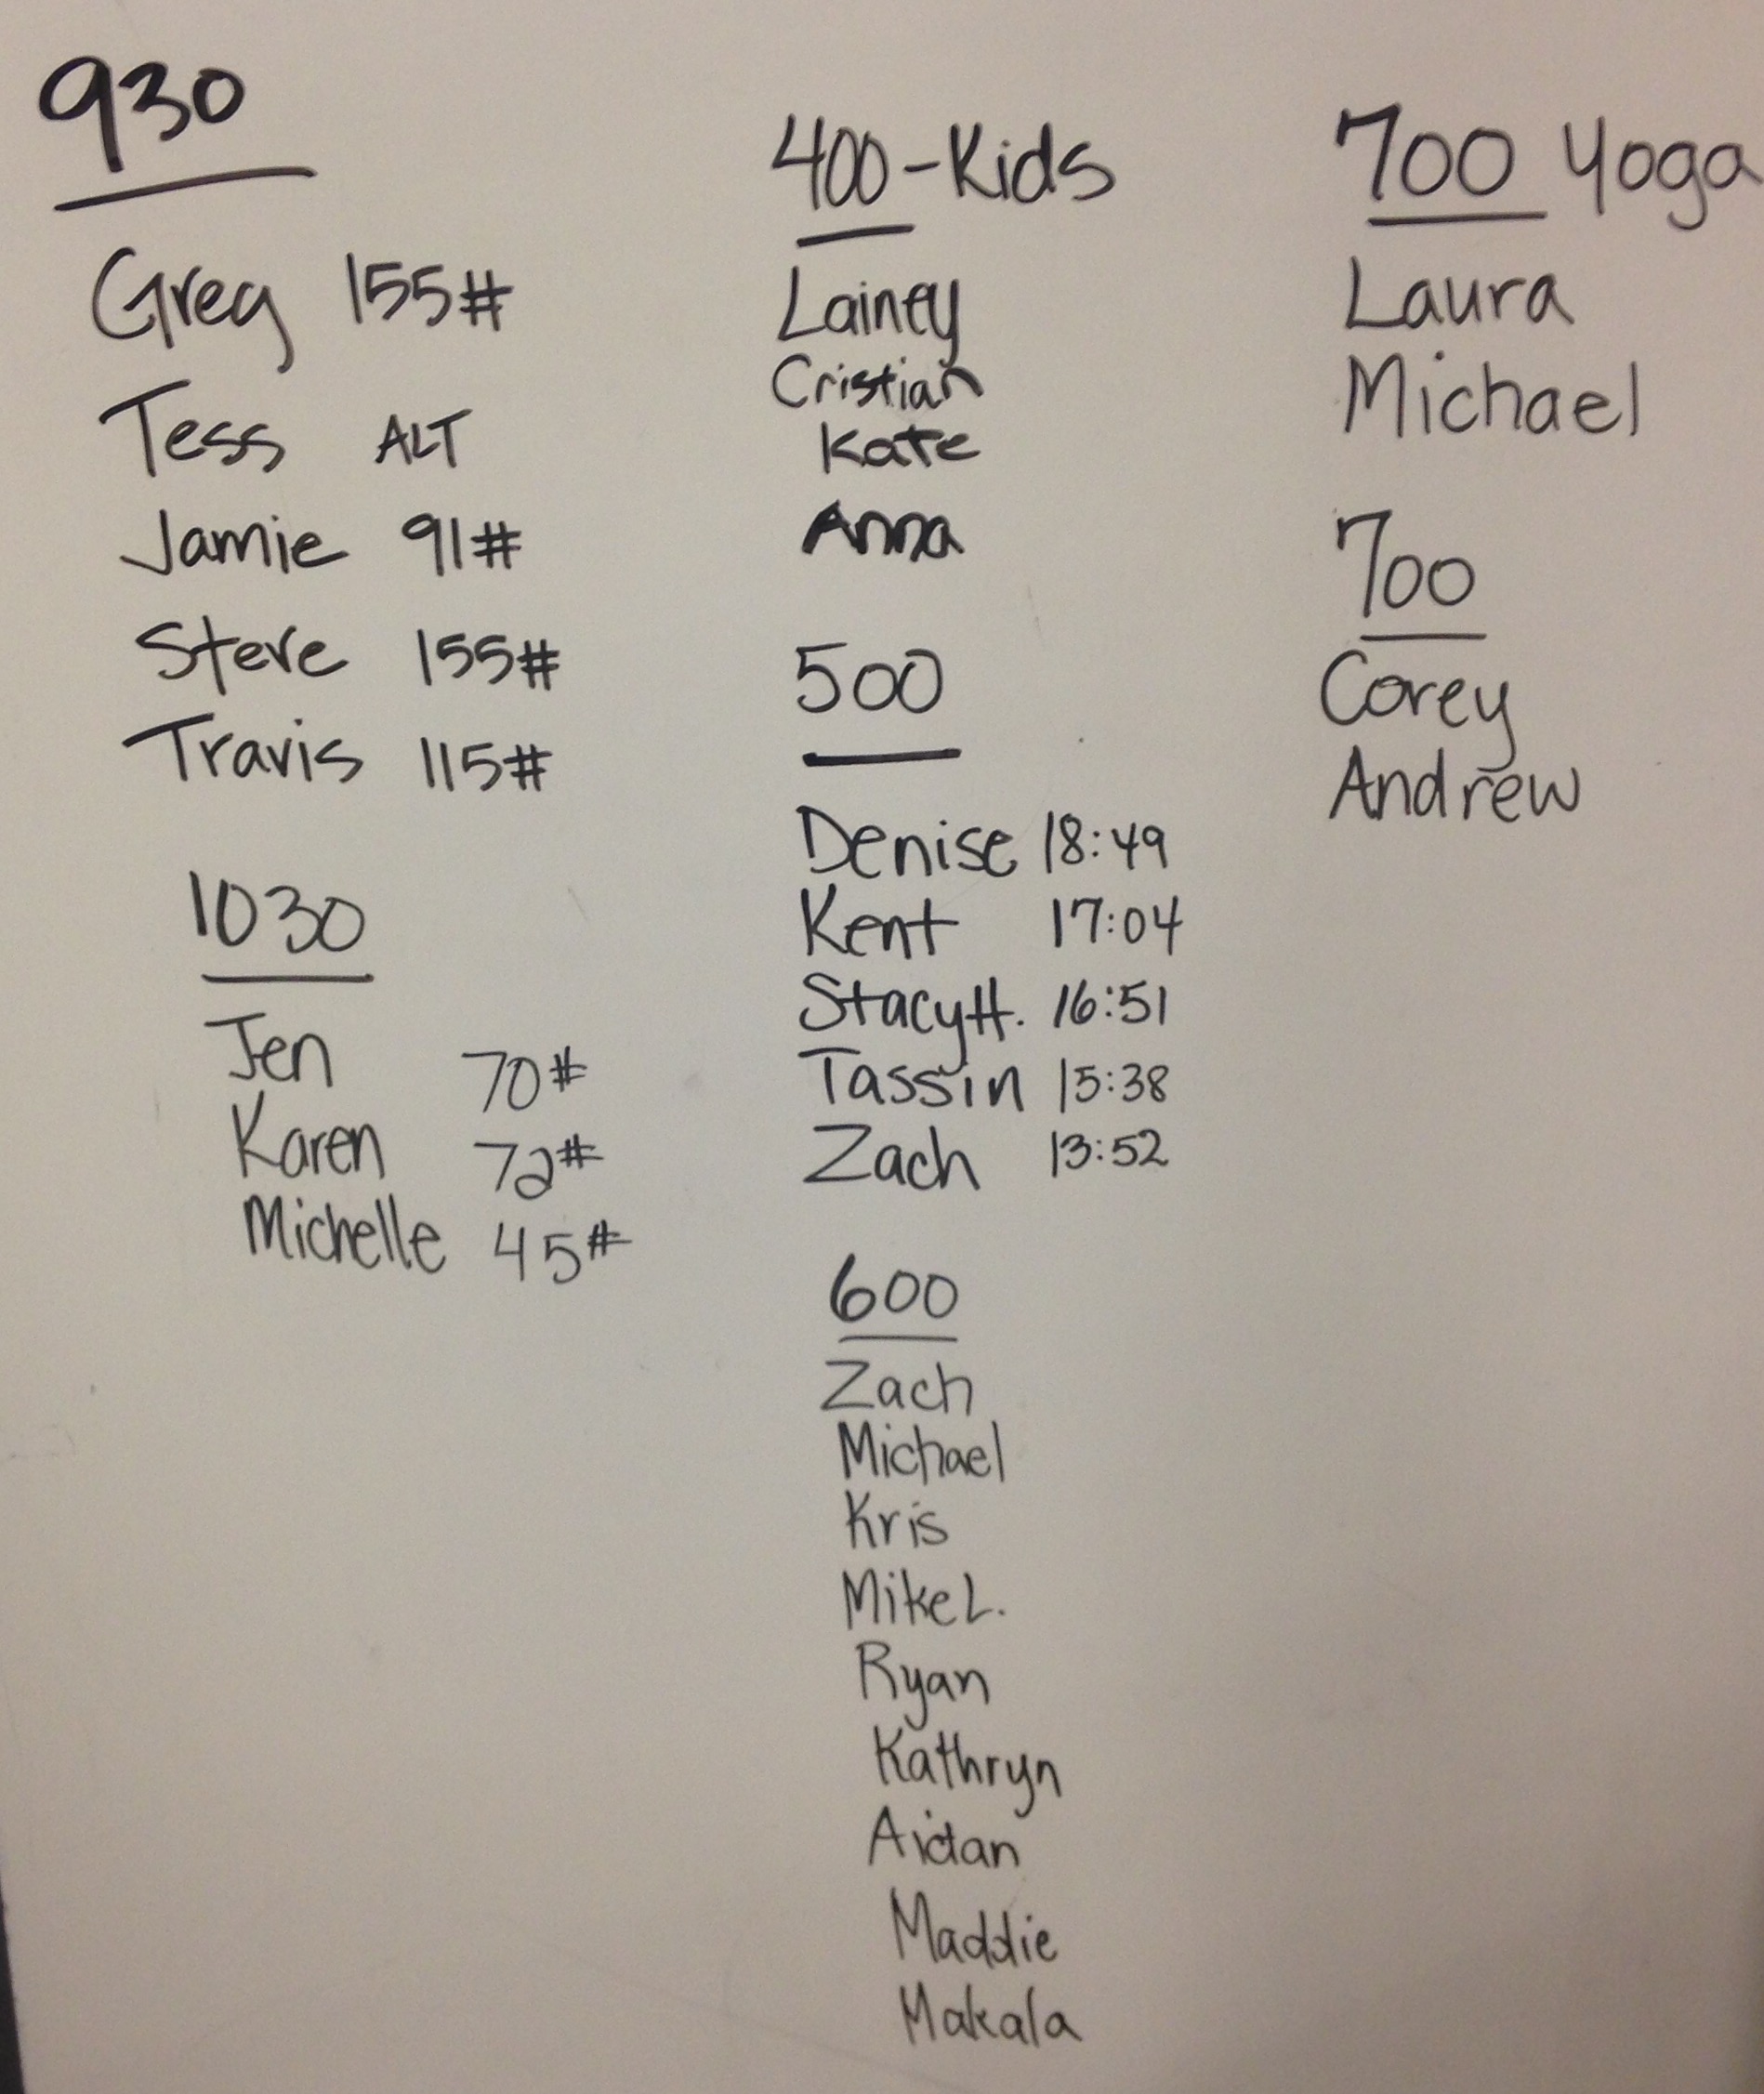 930
Greg 155#
Tess ALT
Jamie 91#
Steve 155#
Travis 115#
1030
Jen 70#
Karen 72#
Michelle 45#
400-Kids
Lainey
Cristian
Kate
Anna
500
Denise 18:49
Kent 17:04
Stacy H. 16:51
Tassin 15:38
Zach 13:52
600
Zach
Michael
Kris
Mike L.
Ryan
Kathryn
Aidan
Maddie
Makala
700 Yoga
Laura
Michael
700
Corey
Andrew